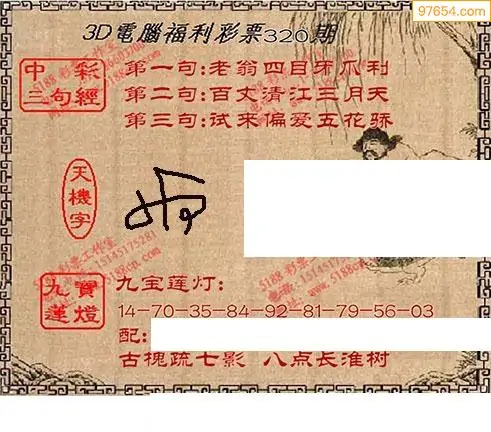 97654.com
3D電腦福利彩票320期
中彩
三句經
第一句:老翁四目牙爪利
第二句:百丈清江三月天
第三句:试来偏爱五花骄
天機字
九寶
蓮燈
九宝莲灯:
14-70-35-84-92-81-79-56-03
配:
古槐疏七影 八点长淮树
5188 彩票工作室
15145175281
5188cn.com